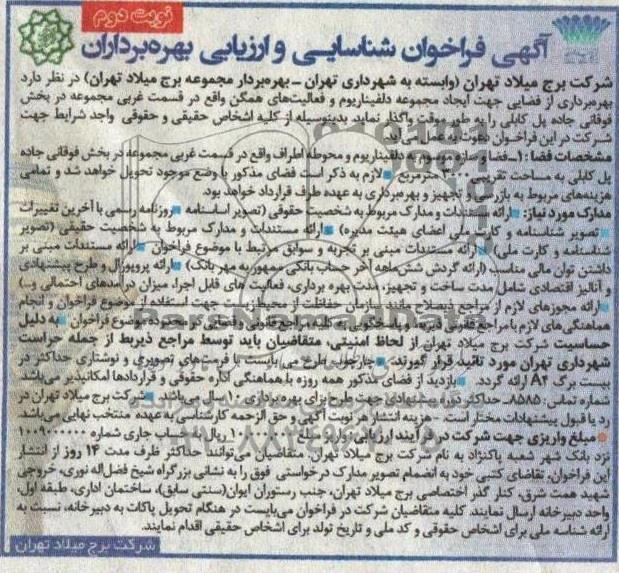 نوبت دوم
آگهی فراخوان شناسایی و ارزیابی بهره‌برداران
شرکت برج میلاد تهران (وابسته به شهرداری تهران - بهره‌بردار مجموعه برج میلاد تهران) در نظر دارد
بهره‌برداری از فضایی جهت ایجاد مجموعه دلفیناریوم و فعالیت‌های همگن واقع در قسمت غربی مجموعه در بخش
فوقانی جاده یل کابلی را به طور موقت واگذار نماید بدینوسیله از کلیه اشخاص حقیقی و حقوقی واجد شرایط جهت
شرکت در این فراخوان دعوت به عمل می‌آید.
مشخصات فضا: ۱- فضا و سازه موسوم به دلفیناریوم و محوطه اطراف واقع در قسمت غربی مجموعه در بخش فوقانی جاده
یل کابلی به مساحت تقریبی ۳۰۰۰ مترمربع لازم به ذکر است فضای مذکور با وضع موجود تحویل خواهد شد و تمامی
هزینه‌های مربوط به بازرسی و تجهیز و بهره‌برداری به عهده طرف قرارداد خواهد بود.
مدارک مورد نیاز: ارائه مستندات و مدارک مربوط به شخصیت حقوقی (تصویر اساسنامه روزنامه رسمی با آخرین تغییرات
تصویر شناسنامه و کارت ملی اعضای هیئت مدیره) ارائه مستندات و مدارک مربوط به شخصیت حقیقی (تصویر
شناسنامه و کارت ملی) ارائه مستندات مبنی بر تجربه و سوابق مرتبط با موضوع فراخوان ارائه مستندات مبنی بر
داشتن توان مالی مناسب (ارائه گردش شش‌ماهه آخر حساب بانکی ممهور به مهر بانک) ارائه پروپوزال و طرح پیشنهادی
و آنالیز اقتصادی شامل مدت ساخت و تجهیز، مدت بهره برداری، فعالیت های قابل اجرا، میزان درآمدهای احتمالی و...)
ارائه مجوزهای لازم از مراجع ذیصلاح مانند سازمان حفاظت از محیط زیست جهت استفاده از موضوع فراخوان و انجام
هماهنگی‌های لازم با مراجع قانونی ذیربط و پاسخگویی به کلیه مراجع قانونی و قضایی در محدوده موضوع فراخوان به دلیل
حساسیت شرکت برج میلاد تهران از لحاظ امنیتی، متقاضیان باید توسط مراجع ذیربط از جمله حراست
شهرداری تهران مورد تائید قرار گیرند. چارچوب طرح می بایست با فرمت‌های تصویری و نوشتاری حداکثر در
بیست برگ A۴ ارائه گردد. بازدید از فضای مذکور همه روزه با هماهنگی اداره حقوقی و قراردادها امکانپذیر می‌باشد
شماره تماس: ۸۵۸۵. حداکثر دوره پیشنهادی جهت طرح برای بهره برداری ۱۰ سال می‌باشد. شرکت برج میلاد تهران در
رد یا قبول پیشنهادات مختار است. هزینه انتشار هر نوبت آگهی و حق الزحمه کارشناسی به عهده منتخب نهایی می‌باشد.
مبلغ واریزی جهت شرکت در فرآیند ارزیابی واریز مبلغ ریال به حساب جاری شماره
نزد بانک شهر شعبه پاکنژاد به نام شرکت برج میلاد تهران. متقاضیان می‌توانند حداکثر ظرف مدت ۱۴ روز از انتشار
این فراخوان، تقاضای کتبی خود به انضمام تصویر مدارک درخواستی فوق را به نشانی بزرگراه شیخ فضل‌اله نوری، خروجی
شهید همت شرق، کنار گذر اختصاصی برج میلاد تهران، جنب رستوران ایوان(سنتی سابق)، ساختمان اداری، طبقه اول،
واحد دبیرخانه ارسال نمایند. کلیه متقاضیان شرکت در فراخوان می‌بایست در هنگام تحویل پاکات به دبیرخانه، نسبت به
ارائه شناسه ملی برای اشخاص حقوقی و کد ملی و تاریخ تولد برای اشخاص حقیقی اقدام نمایند.
شرکت برج میلاد تهران
ParsNamadData